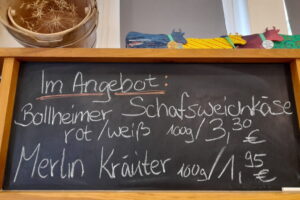 Im Angebot:
Bollheimer Schafsweichkäse
rot/weiß 100g/3,30 €
Merlin Kräuter 100g/1,95 €